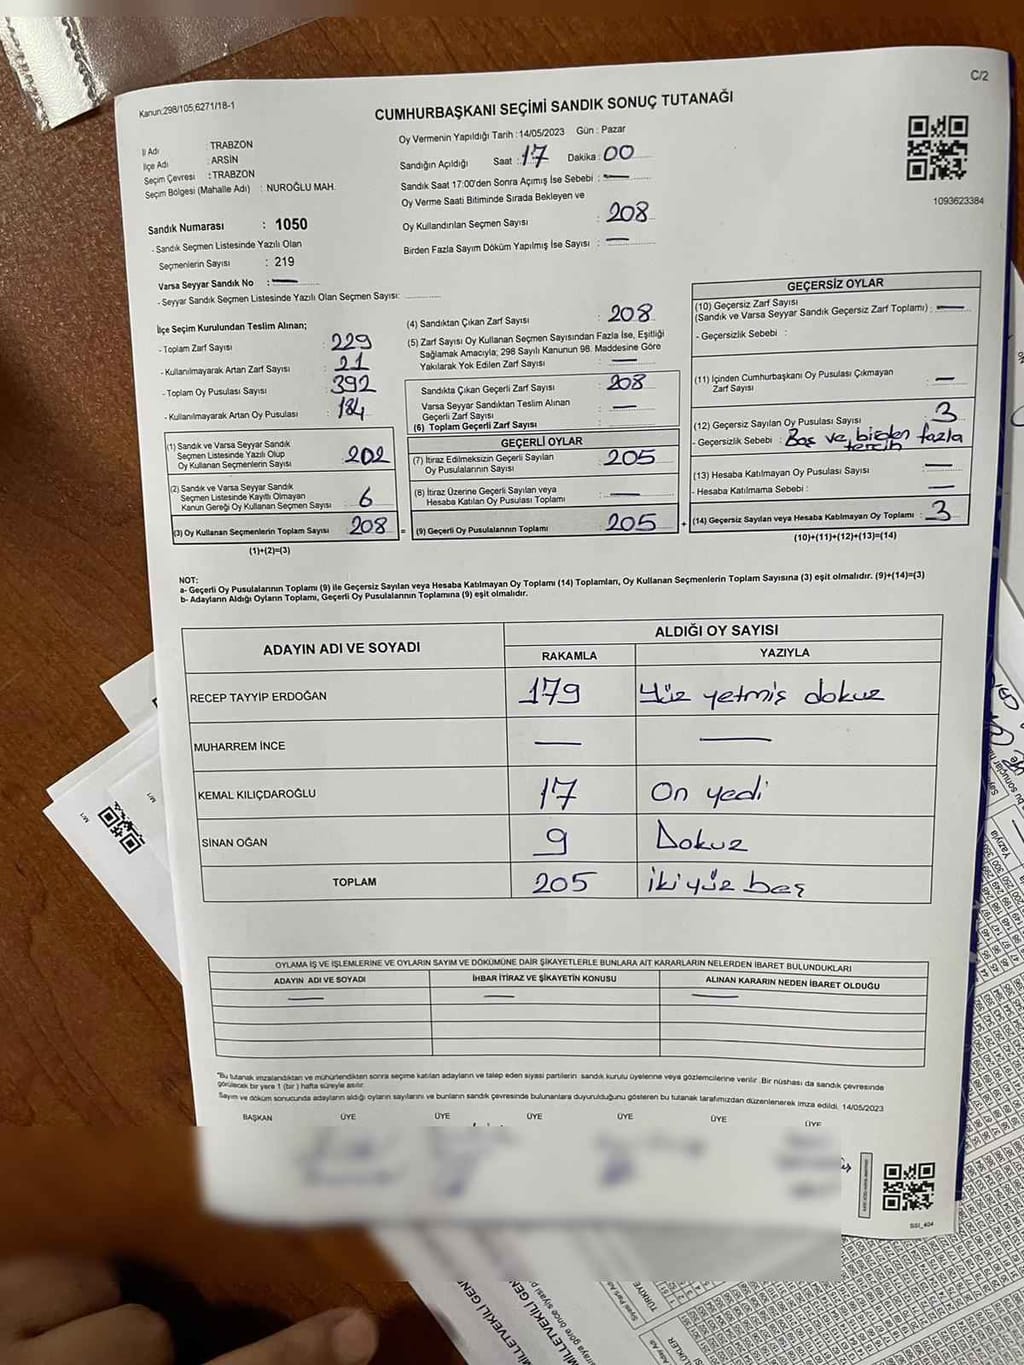 C/2
Kanun:298/105;6271/18-1
CUMHURBAŞKANI SEÇİMİ SANDIK SONUÇ TUTANAĞI
İl Adı : TRABZON
İlçe Adı : ARSİN
Seçim Çevresi : TRABZON
Seçim Bölgesi (Mahalle Adı) : NUROĞLU MAH.
Sandık Numarası : 1050
- Sandık Seçmen Listesinde Yazılı Olan
Seçmenlerin Sayısı : 219
Varsa Seyyar Sandık No : —
- Seyyar Sandık Seçmen Listesinde Yazılı Olan Seçmen Sayısı: ............
Oy Vermenin Yapıldığı Tarih : 14/05/2023 Gün : Pazar
Sandığın Açıldığı Saat : 17 Dakika : 00
Sandık Saat 17:00'den Sonra Açımış İse Sebebi : —
Oy Verme Saati Bitiminde Sırada Bekleyen ve
Oy Kullandırılan Seçmen Sayısı : 208
Birden Fazla Sayım Döküm Yapılmış İse Sayısı : —
1093623384
İlçe Seçim Kurulundan Teslim Alınan;
- Toplam Zarf Sayısı : 229
- Kullanılmayarak Artan Zarf Sayısı : 21
- Toplam Oy Pusulası Sayısı : 392
- Kullanılmayarak Artan Oy Pusulası : 184
(1) Sandık ve Varsa Seyyar Sandık
Seçmen Listesinde Yazılı Olup
Oy Kullanan Seçmenlerin Sayısı : 202
(2) Sandık ve Varsa Seyyar Sandık
Seçmen Listesinde Kayıtlı Olmayan
Kanun Gereği Oy Kullanan Seçmen Sayısı : 6
(3) Oy Kullanan Seçmenlerin Toplam Sayısı : 208
(1)+(2)=(3)
(4) Sandıktan Çıkan Zarf Sayısı : 208
(5) Zarf Sayısı Oy Kullanan Seçmen Sayısından Fazla İse, Eşitliği
Sağlamak Amacıyla; 298 Sayılı Kanunun 98. Maddesine Göre
Yakılarak Yok Edilen Zarf Sayısı : —
Sandıkta Çıkan Geçerli Zarf Sayısı : 208
Varsa Seyyar Sandıktan Teslim Alınan
Geçerli Zarf Sayısı : —
(6) Toplam Geçerli Zarf Sayısı :
GEÇERLİ OYLAR
(7) İtiraz Edilmeksizin Geçerli Sayılan
Oy Pusulalarının Sayısı : 205
(8) İtiraz Üzerine Geçerli Sayılan veya
Hesaba Katılan Oy Pusulası Toplamı : —
= (9) Geçerli Oy Pusulalarının Toplamı : 205
GEÇERSİZ OYLAR
(10) Geçersiz Zarf Sayısı
(Sandık ve Varsa Seyyar Sandık Geçersiz Zarf Toplamı) : —
- Geçersizlik Sebebi :
(11) İçinden Cumhurbaşkanı Oy Pusulası Çıkmayan
Zarf Sayısı : —
(12) Geçersiz Sayılan Oy Pusulası Sayısı : 3
- Geçersizlik Sebebi : Boş ve, birden fazla
tercih
(13) Hesaba Katılmayan Oy Pusulası Sayısı : —
- Hesaba Katılmama Sebebi : —
+ (14) Geçersiz Sayılan veya Hesaba Katılmayan Oy Toplamı : 3
(10)+(11)+(12)+(13)=(14)
NOT:
a- Geçerli Oy Pusulalarının Toplamı (9) ile Geçersiz Sayılan veya Hesaba Katılmayan Oy Toplamı (14) Toplamları, Oy Kullanan Seçmenlerin Toplam Sayısına (3) eşit olmalıdır. (9)+(14)=(3)
b- Adayların Aldığı Oyların Toplamı, Geçerli Oy Pusulalarının Toplamına (9) eşit olmalıdır.
ADAYIN ADI VE SOYADI ALDIĞI OY SAYISI
RAKAMLA YAZIYLA
RECEP TAYYİP ERDOĞAN 179 Yüz yetmiş dokuz
MUHARREM İNCE — —
KEMAL KILIÇDAROĞLU 17 On yedi
SİNAN OĞAN 9 Dokuz
TOPLAM 205 İki yüz beş
OYLAMA İŞ VE İŞLEMLERİNE VE OYLARIN SAYIM VE DÖKÜMÜNE DAİR ŞİKAYETLERLE BUNLARA AİT KARARLARIN NELERDEN İBARET BULUNDUKLARI
ADAYIN ADI VE SOYADI İHBAR İTİRAZ VE ŞİKAYETİN KONUSU ALINAN KARARIN NEDEN İBARET OLDUĞU
— — —
"Bu tutanak imzalandıktan ve mühürlendikten sonra seçime katılan adayların ve talep eden siyasi partilerin sandık kurulu üyelerine veya gözlemcilerine verilir. Bir nüshası da sandık çevresinde
görülecek bir yere 1 (bir ) hafta süreyle asılır.
Sayım ve döküm sonucunda adayların aldığı oyların sayılarını ve bunların sandık çevresinde bulunanlara duyurulduğunu gösteren bu tutanak tarafımızdan düzenlenerek imza edildi. 14/05/2023
BAŞKAN ÜYE ÜYE ÜYE ÜYE ÜYE ÜYE
SSI_404
M/1
M/1
MİLLETVEKİLİ GEN
MİLLETVEKİLİ GEN
TÜRKİYE
Yazıyla